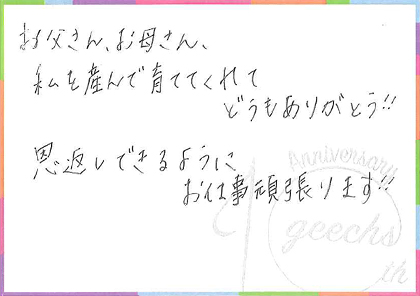 お父さん、お母さん、
私を産んで育ててくれて
どうもありがとう!!
恩返しできるように
お仕事頑張ります!!
Anniversary
geechs
th